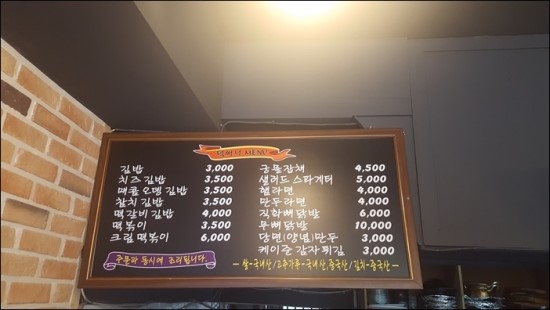 MENU
김밥 3,000
치즈김밥 3,500
매콤오뎅김밥 3,500
참치김밥 3,500
떡갈비김밥 4,000
떡볶이 3,500
크림 떡볶이 6,000
주문과 동시에 조리됩니다.
궁물잡채 4,500
샐러드 스파게티 5,000
햄라면 4,000
만두라면 4,000
직화뼈닭발 6,000
무뼈닭발 10,000
당면(양념)만두 3,000
케이준감자튀김 3,000
- 쌀-국내산/고추가루-국내산,중국산/김치-중국산 -